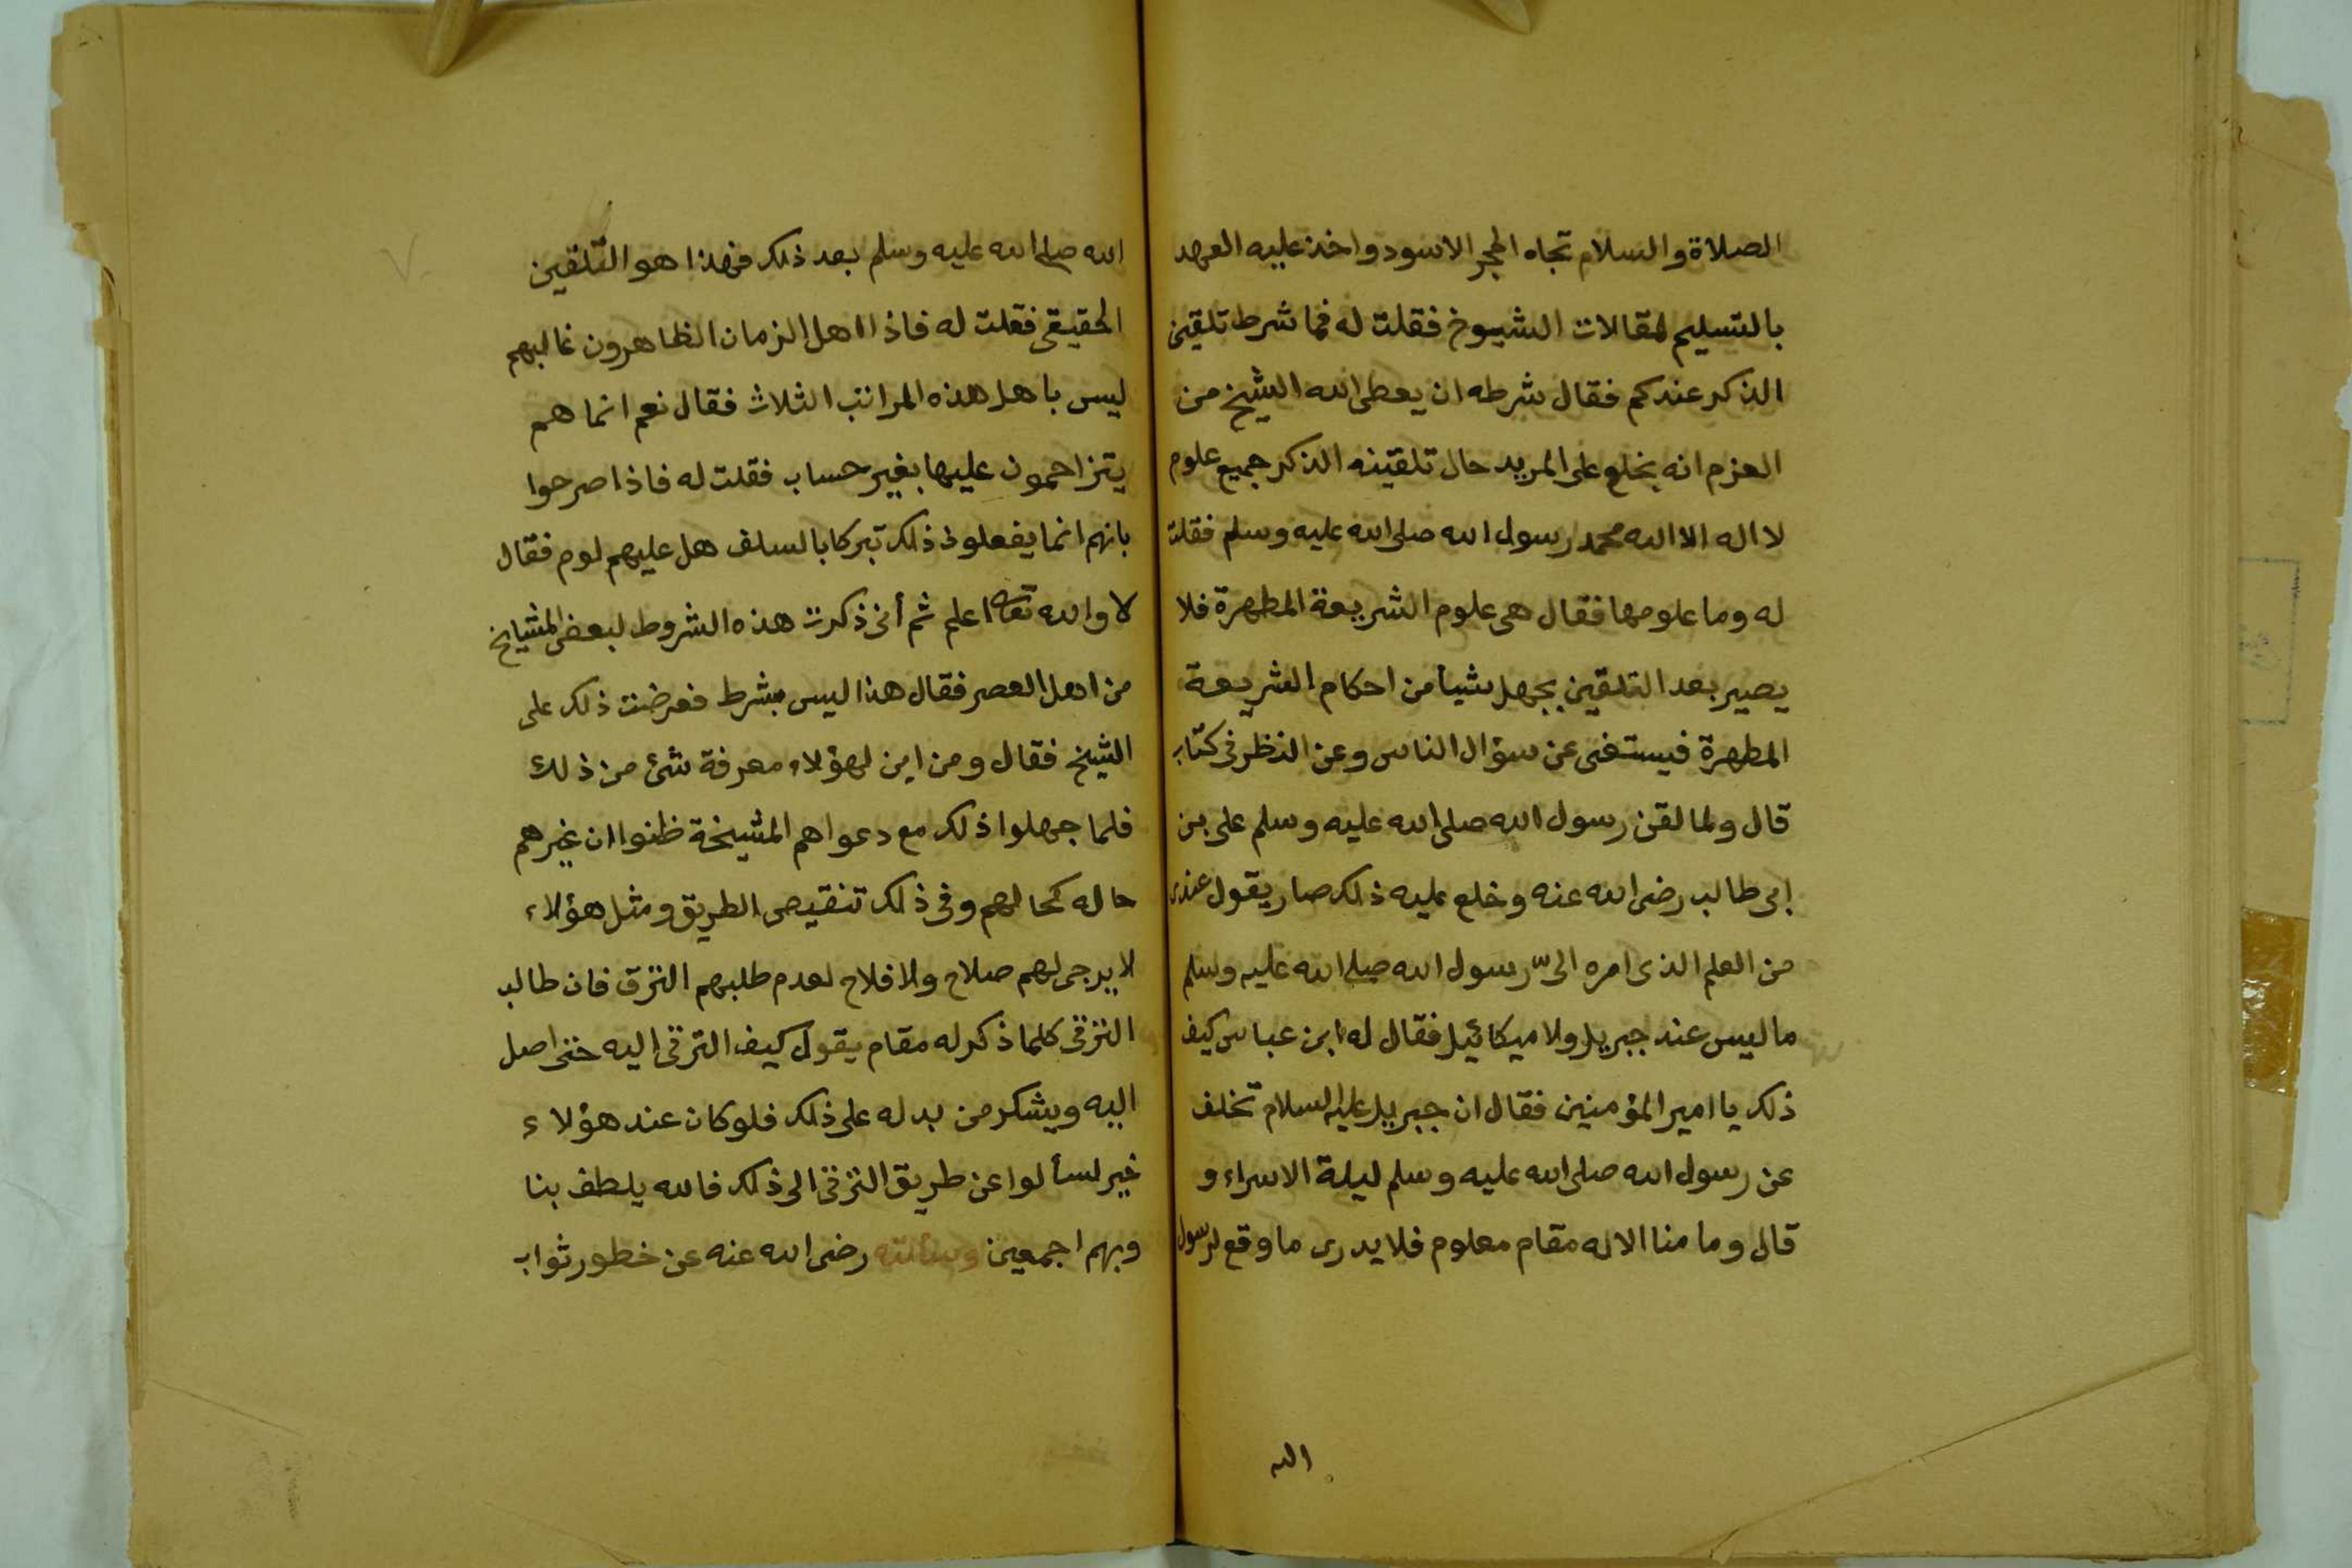 الصلاة والسلام تجاه الحجر الاسود واخذ عليه العهد
بالتسليم لمقالات الشيوخ فقلت له فما شرط تلقين
الذكر عندكم فقال شرطه ان يعطى الله الشيخ من
العزم انه يخلع على المريد حال تلقينه الذكر جميع علوم
لا اله الا الله محمد رسول الله صلى الله عليه وسلم فقلت
له وما علومها فقال هى علوم الشريعة المطهرة فلا
يصير بعد التلقين يجهل شيأ من احكام الشريعة
المطهرة فيستغنى عن سؤال الناس وعن النظر فى كتاب
قال ولما لقن رسول الله صلى الله عليه وسلم على بن
ابى طالب رضى الله عنه وخلع عليه ذلك صار يقول عندى
من العلم الذى اسره الى رسول الله صلى الله عليه وسلم
ما ليس عند جبريل ولا ميكائيل فقال له ابن عباس كيف
ذلك يا امير المؤمنين فقال ان جبريل عليه السلام تخلف
عن رسول الله صلى الله عليه وسلم ليلة الاسراء و
قال وما منا الا له مقام معلوم فلا يدرى ما وقع لرسول
الله
الله صلى الله عليه وسلم بعد ذلك فهذا هو التلقين
الحقيقى فقلت له فاذا اهل الزمان الظاهرون غالبهم
ليس باهل هذه المراتب الثلاث فقال نعم انما هم
يتزاحمون عليها بغير حساب فقلت له فاذا صرحوا
بانهم انما يفعلون ذلك تبركا بالسلف هل عليهم لوم فقال
لا والله تعالى اعلم ثم أنى ذكرت هذه الشروط لبعض المشايخ
من اهل العصر فقال هذا ليس بشرط فعرضت ذلك على
الشيخ فقال ومن اين لهؤلاء معرفة شئ من ذلك
فلما جهلوا ذلك مع دعواهم المشيخة ظنوا ان غيرهم
حاله كحالهم وفى ذلك تنقيص الطريق ومثل هؤلاء
لا يرجى لهم صلاح ولا فلاح لعدم طلبهم الترق فان طالب
الترقى كلما ذكر له مقام يقول كيف الترقى اليه حتى اصل
اليه ويشكر من يدله على ذلك فلو كان عند هؤلاء
خير لسألوا عن طريق الترقى الى ذلك فالله يلطف بنا
وبهم اجمعين وسألته رضى الله عنه عن خطور ثواب